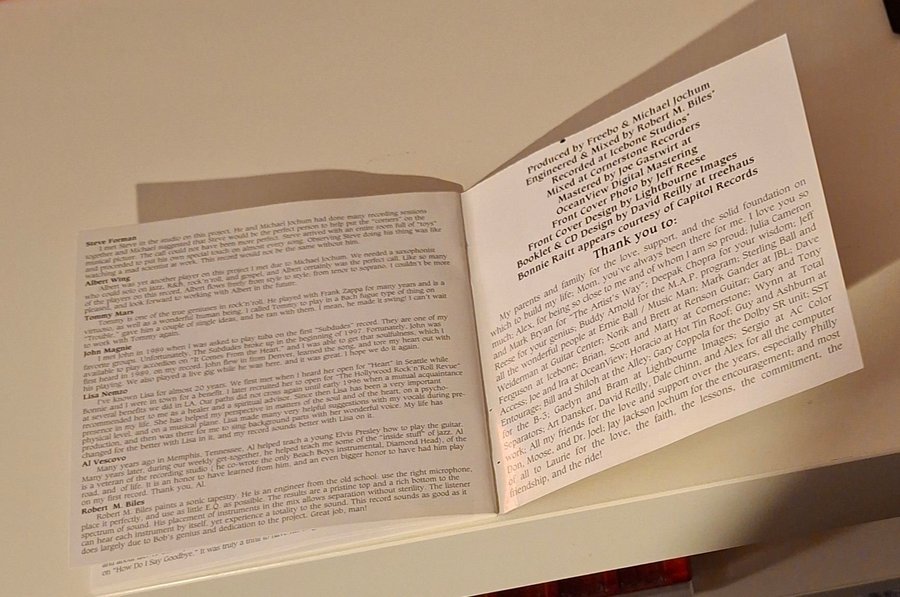 Steve Forman
I met Steve in the studio on this project. He and Michael Jochum had done many recording sessions
together and Michael suggested that Steve would be the perfect person to help put the "corners" on the
musical picture. The call could not have been more perfect. Steve arrived with an entire room full of "toys"
and proceeded to put his own special touch on almost every song. Observing Steve doing his thing was like
watching a mad scientist at work. This record would not be the same without him.
Albert Wing
Albert was yet another player on this project I met due to Michael Jochum. We needed a saxophonist
who could solo on jazz, R&B, rock'n'roll, and gospel, and Albert certainly was the perfect call. Like so many
of the players on this record, Albert flows freely from style to style, from tenor to soprano. I couldn't be more
pleased, and look forward to working with Albert in the future.
Tommy Mars
Tommy is one of the true geniuses in rock'n'roll. He played with Frank Zappa for many years and is a
virtuoso, as well as a wonderful human being. I called Tommy to play in a Bach fugue type of thing on
"Trouble," gave him a couple of single ideas, and he ran with them. I mean, he made it swing! I can't wait
to work with Tommy again.
John Magnie
I met John in 1989 when I was asked to play tuba on the first "Subdudes" record. They are one of my
favorite groups. Unfortunately, The Subdudes broke up in the beginning of 1997. Fortunately, John was
available to play accordion on "It Comes From the Heart," and I was able to get that soulfulness, which I
first heard in 1989, on my record. John flew in from Denver, learned the song, and tore my heart out with
his playing. We also played a live gig while he was here, and it was great. I hope we do it again.
Lisa Nemzo
I've known Lisa for almost 20 years. We first met when I heard her open for "Heart" in Seattle while
Bonnie and I were in town for a benefit. I later recruited her to open for "The Hollywood Rock'n'Roll Revue"
at several benefits we did in LA. Our paths did not cross again until early 1996 when a mutual acquaintance
recommended her to me as a healer and a spiritual advisor. Since then Lisa has been a very important
presence in my life. She has helped my perspective in matters of the soul and of the heart, on a psycho-
physical level, and on a musical plane. Lisa made many very helpful suggestions with my vocals during pre-
production, and then was there for me to sing background parts with her wonderful voice. My life has
changed for the better with Lisa in it, and my record sounds better with Lisa on it.
Al Vescovo
Many years ago in Memphis, Tennessee, Al helped teach a young Elvis Presley how to play the guitar.
Many years later, during our weekly get-together, he helped teach me some of the "inside stuff" of jazz. Al
is a veteran of the recording studio ( he co-wrote the only Beach Boys instrumental, Diamond Head), of the
road, and of life. It is an honor to have learned from him, and an even bigger honor to have had him play
on my first record. Thank you, Al.
Robert M. Biles
Robert M. Biles paints a sonic tapestry. He is an engineer from the old school: use the right microphone,
place it perfectly, and use as little E.Q. as possible. The results are a pristine top and a rich bottom to the
spectrum of sound. His placement of instruments in the mix allows separation without sterility. The listener
can hear each instrument by itself, yet experience a totality to the sound. This record sounds as good as it
does largely due to Bob's genius and dedication to the project. Great job, man!
on "How Do I Say Goodbye." It was truly a
Produced by Freebo & Michael Jochum
Engineered & Mixed by Robert M. Biles*
Recorded at Icebone Studios*
Mixed at Cornerstone Recorders
Mastered by Joe Gastwirt at
OceanView Digital Mastering
Front Cover Photo by Jeff Reese
Front Cover Design by Lightbourne Images
Booklet & CD Design by David Reilly at treehaus
Bonnie Raitt appears courtesy of Capitol Records
Thank you to:
My parents and family for the love, support, and the solid foundation on
which to build my life; Mom, you've always been there for me. I love you so
much; Alex, for being so close to me and of whom I am so proud; Julia Cameron
and Mark Bryan for "The Artist's Way"; Deepak Chopra for your wisdom; Jeff
Reese for your genius; Buddy Arnold for the M.A.P. program; Sterling Ball and
all the wonderful people at Ernie Ball / Music Man; Mark Gander at JBL; Dave
Weiderman at Guitar Center; Norik and Brett at Renson Guitar; Gary and Tony
Ferguson at Icebone; Brian, Scott and Marty at Cornerstone; Wynn at Total
Access; Joe and Ira at OceanView; Horacio at Hot Tin Roof; Guy and Ashburn at
Entourage; Bill and Shiloh at the Alley; Gary Coppola for the Dolby SR unit; SST
for the B-5; Gaelyn and Bram at Lightbourne Images; Sergio at AC Color
Separators; Art Dansker, David Reilly, Dale Chinn, and Alex for all the computer
work; All my friends for the love and support over the years, especially Philly
Don, Moose, and Dr. Joel; Jay Jackson Jochum for the encouragement; and most
of all to Laurie for the love, the faith, the lessons, the commitment, the
friendship, and the ride!